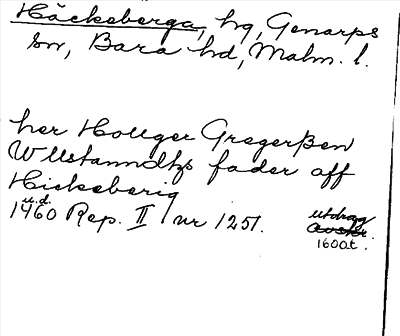 Häckeberga, hg, Genarps
sn, Bara hd, Malm. l.
her Hollger Gregerßen
Wllstanndtzs fader aff
Hickeberig
u.d.
1460 Rep. II nr 1251.
utdrag
avskr.
1600t.